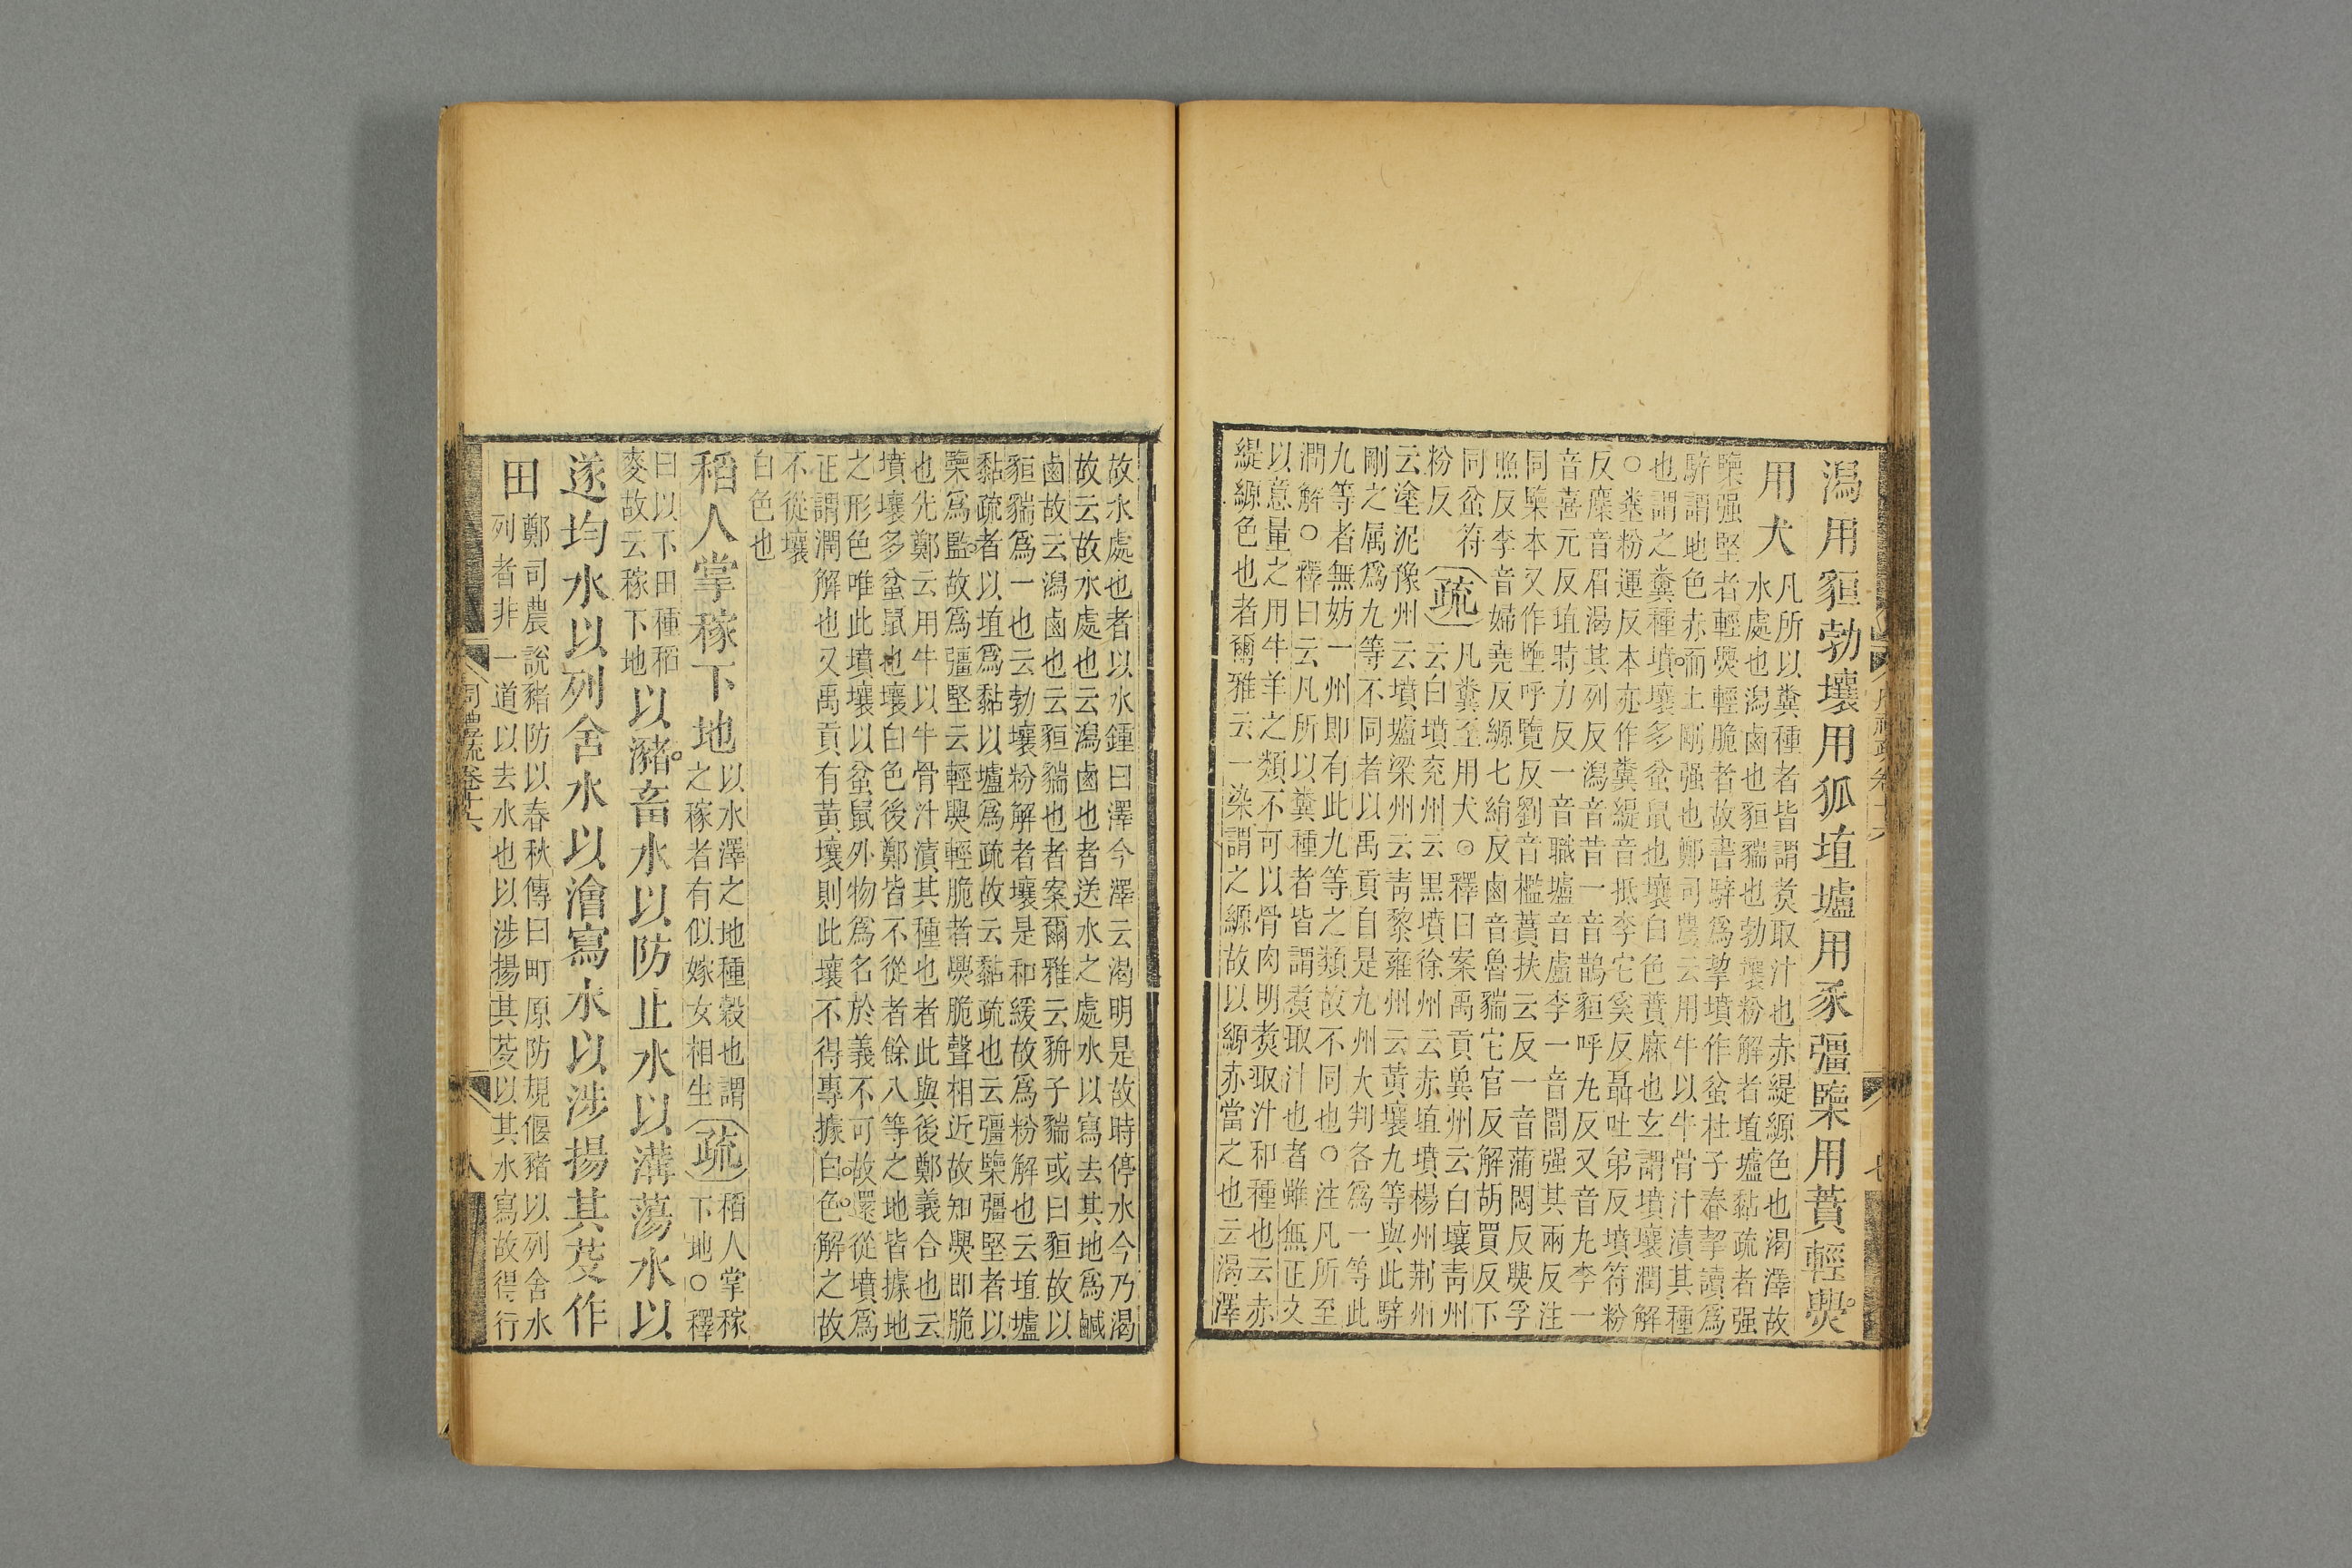 潟用貆勃壤用狐埴壚用豕彊㯺用蕡輕㷕
用犬
凡所以糞種者皆謂煑取汁也赤緹縓色也渴澤故
水處也潟鹵也貆貒也勃壤粉解者埴壚黏疏者强
㯺强堅者輕㷕輕脆者故書騂爲挈墳作蚠杜子春挈讀爲
騂謂地色赤而土剛强也鄭司農云用牛以牛骨汁漬其種
也謂之糞種墳壤多蚠鼠也壤白色蕡麻也玄謂墳壤潤解
○糞粉運反本亦作糞緹音抵李它奚反聶吐弟反墳符粉
反麋音眉渴其列反潟音昔一音鵲貆呼九反又音九李一
音喜元反埴時力反一音職壚音盧李一音閭强其兩反注
同㯺本又作壏呼覽反劉音檻蕡扶云反一音蒲悶反㷕孚
照反李音婦堯反縓七絹反鹵音魯貒它官反解胡買反下
同蚠符
粉反
疏
凡糞至用犬○釋曰案禹貢兾州云白壤靑州
云白墳兖州云黑墳徐州云赤埴墳楊州荆州
云塗泥豫州云墳壚梁州云靑黎雍州云黃壤九等與此騂
剛之属爲九等不同者以禹貢自是九州大判各爲一等此
九等者無妨一州即有此九等之類故不同也○注凡所至
潤解○釋曰云凡所以糞種者皆謂煑取汁也者雖無正文
以意量之用牛羊之類不可以骨肉明煑取汁和種也云赤
緹縓色也者爾雅云一染謂之縓故以縓赤當之也云渴澤
故水處也者以水鍾曰澤今澤云渴明是故時停水今乃渴
故云故水處也云潟鹵也者送水之處水以寫去其地爲鹹
鹵故云潟鹵也云貆貒也者案爾雅云貈子貒或曰貆故以
貆貒爲一也云勃壤粉解者壤是和緩故爲粉解也云埴壚
黏疏者以埴爲黏以壚爲疏故云黏疏也云彊㯺彊堅者以
㯺爲監故爲彊堅云輕㷕輕脆者㷕脆聲相近故知㷕即脆
也先鄭云用牛以牛骨汁漬其種也者此與後鄭義合也云
墳壤多蚠鼠也壤白色後鄭皆不從者餘八等之地皆據地
之形色唯此墳壤以蚠鼠外物爲名於義不可故還從墳爲
正謂潤解也又禹貢有黃壤則此壤不得專據白色解之故
不從壤
白色也
稻人掌稼下地
以水澤之地種穀也謂
之稼者有似嫁女相生
疏
稻人掌稼
下地○釋
曰以下田種稻
麥故云稼下地
以瀦畜水以防止水以溝蕩水以
遂均水以列舍水以澮寫水以涉揚其芟作
田
鄭司農說豬防以春秋傳曰町原防規偃豬以列舍水
列者非一道以去水也以涉揚其芟以其水寫故得行
周禮疏卷十六
八